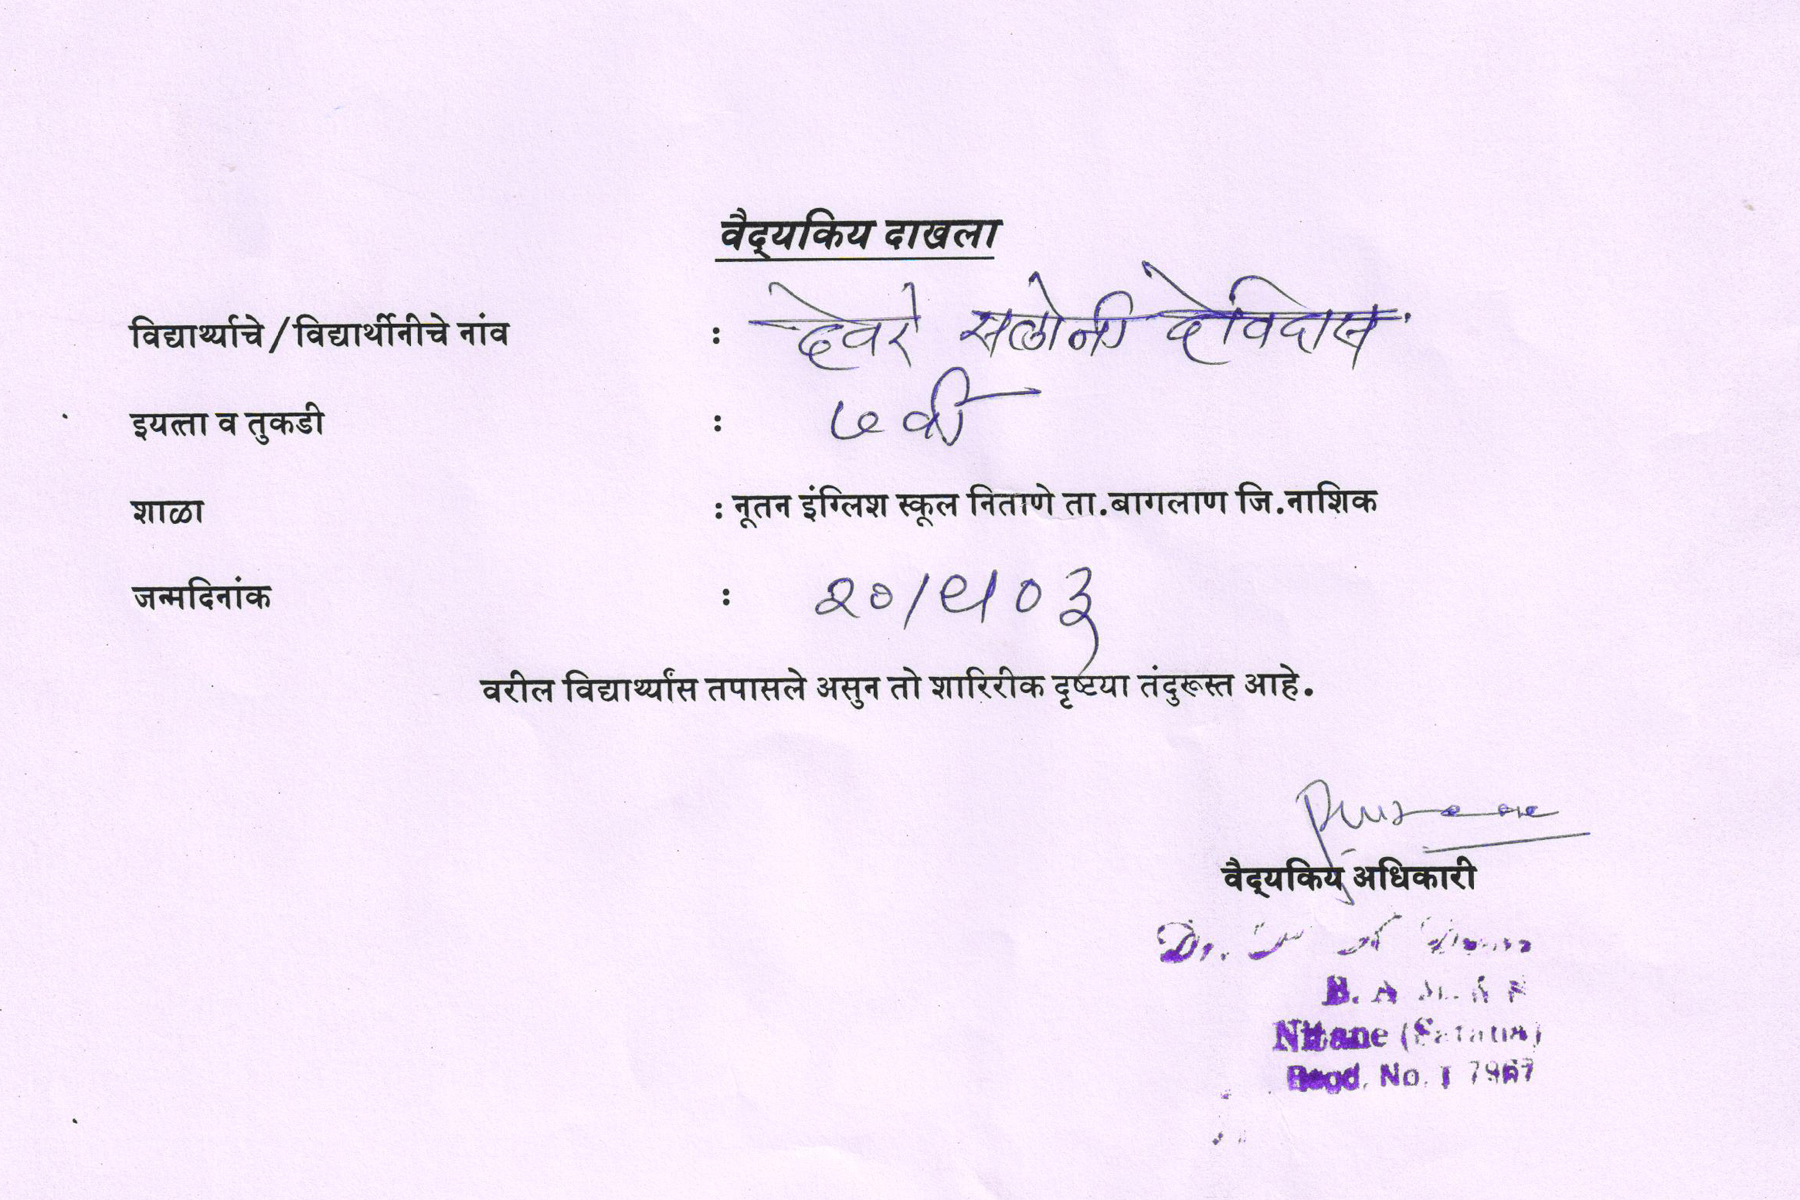 वैद्यकिय दाखला
विद्यार्थ्याचे/विद्यार्थीनीचे नांव : देवरे सलोनी देविदास
इयत्ता व तुकडी : ७ वी
शाळा : नूतन इंग्लिश स्कूल निताणे ता.बागलाण जि.नाशिक
जन्मदिनांक : २०/९/०३
वरील विद्यार्थ्यांस तपासले असुन तो शारिरीक दृष्टया तंदुरूस्त आहे.
वैद्यकिय अधिकारी
Dr.
B. A
Nitane
Regd. No. I 7967